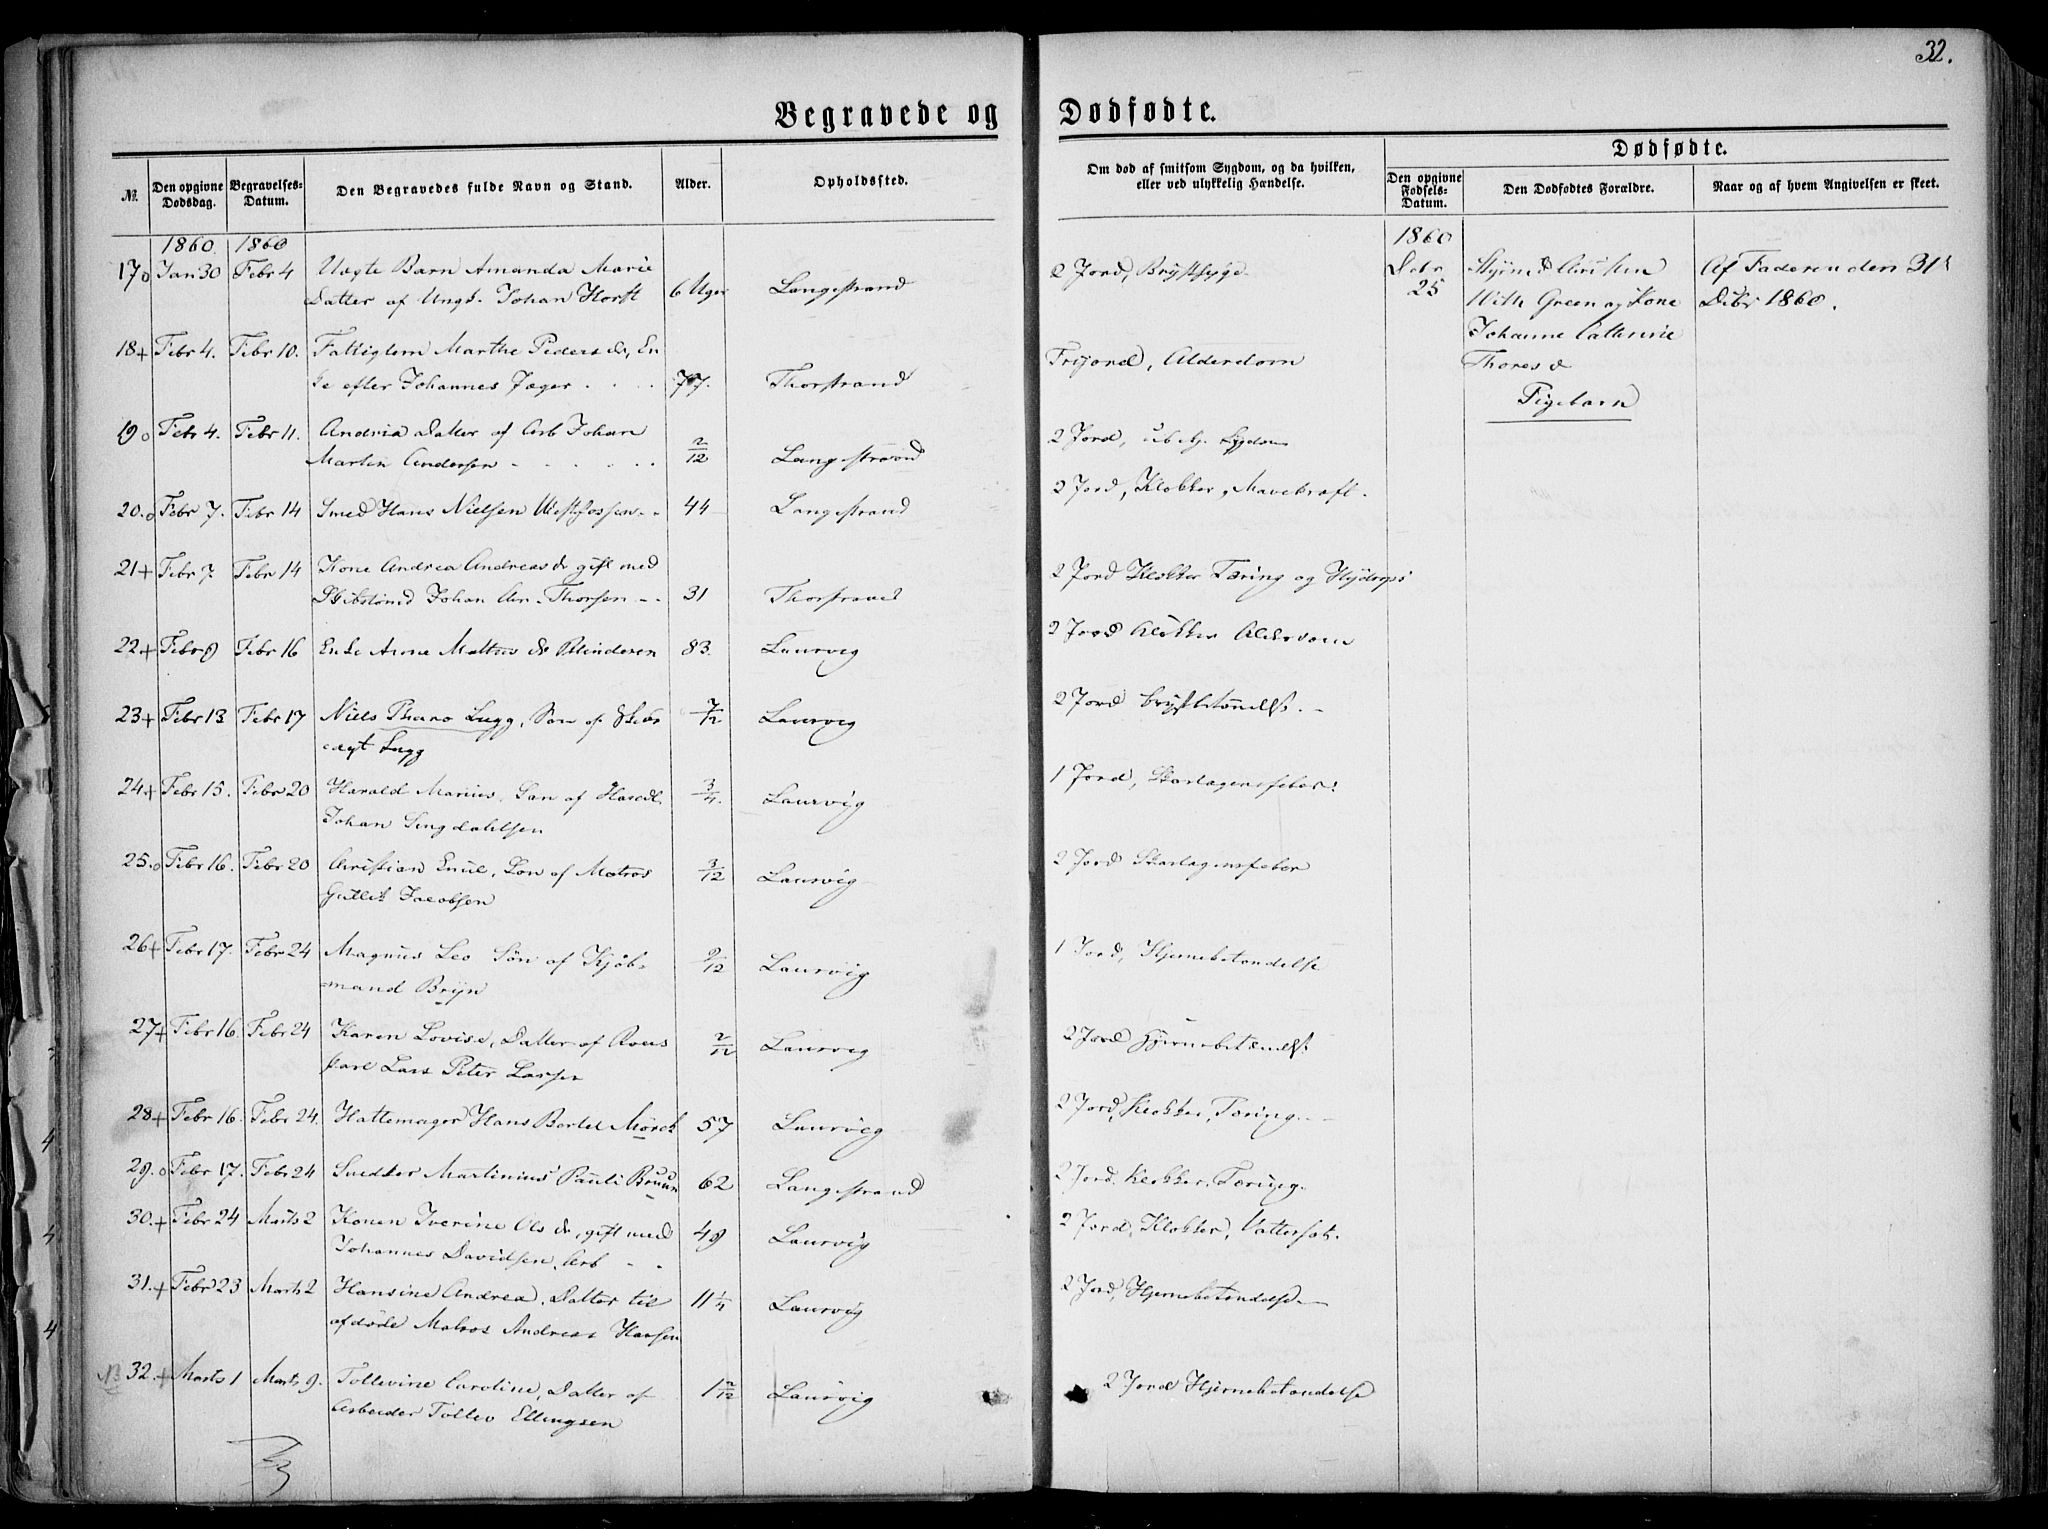 32.
Begravede og Dødfødte.
№ Den opgivne Dødsdag. Begravelses-Datum. Den Begravedes fulde Navn og Stand. Alder. Opholdssted.
Om død af smitsom Sygdom, og da hvilken, eller ved ulykkelig Hændelse.
Dødfødte.
Den opgivne Fødsels-Datum. Den Dødfødtes Forældre. Naar og af hvem Angivelsen er skeet.
1860 1860
17 Jan 30 Febr 4 Uægte Barn Amanda Marie
Datter af Ungk. Johan Horst 6 Uger Langestrand
2 Jord, Brystsyge
18+ Febr 4. Febr 10. Fattiglem Marthe Peders d, En
ke efter Johannes Jæger 77. Thorstrand
Frijord, Alderdom
19 Febr 4. Febr 11. Andrea Datter af Arb Johan
Martin Andersen 2/12 Langestrand
2 Jord, Sygdom
20. Febr 7. Febr 14 Smed Hans Nielsen 44 Langestrand
2 Jord, Klokker, Mavekræft.
21+ Febr 7 Febr 14 Kone Andrea Andreas d gift med
Johan Thorsen 31 Thorstrand
2 Jord Klokker Tæring og Hydrops
22+ Febr 9 Febr 16 Enke Anna 83. Laurvig
2 Jord Klokker Alderdom
23+ Febr 13 Febr 17 Niels Lugg, Søn af
Lugg 7/12 Laurvig
2 Jord
24+ Febr 15. Febr 20 Harald Marius, Søn af
Johan 3/4. Laurvig
1 Jord, Skarlagensfeber.
25. Febr 16. Febr 20 Christian Emil, Søn af Matros
Gullik Jacobsen 3/12 Laurvig
2 Jord Skarlagensfeber
26+ Febr 17. Febr 24 Magnus Leo Søn af Kjøb-
mand Bryn 9/12 Laurvig
1 Jord, Hjernebetændelse
27+ Febr 16 Febr 24 Karen Lovise, Datter af
Lars Peter Larsen 2/12 Laurvig
2 Jord Hjernebetændelse
28+ Febr 16. Febr 24. Hattemager Hans Bertel Mörch 57 Laurvig
2 Jord, Klokker, Tæring.
29. Febr 17. Febr 24 Snedker Martinius Pauli Bruun 62 Langestrand
2 Jord. Klokker. Tæring.
30.+ Febr 24 Marts 2 Konen Iverine Ols d., gift med
Johannes Davidsen, Arb 49 Laurvig
2 Jord, Klokker, Vattersot.
31.+ Febr 23 Marts 2 Hansine Andrea, Datter til
afdøde Matros Andreas Hansen 11 1/4 Laurvig
2 Jord, Hjernebetændelse
32. + Marts 1 Marts 9. Tollevine Caroline, Datter af
Arbeider Tollev Ellingsen 1 2/12 Laurvig
2 Jord Hjernebetændelse
1860
Debr 25
Green og Kone
Johanne Cathrine
Thores d
Pigebarn
Af Faderen den 31
Debr 1860.